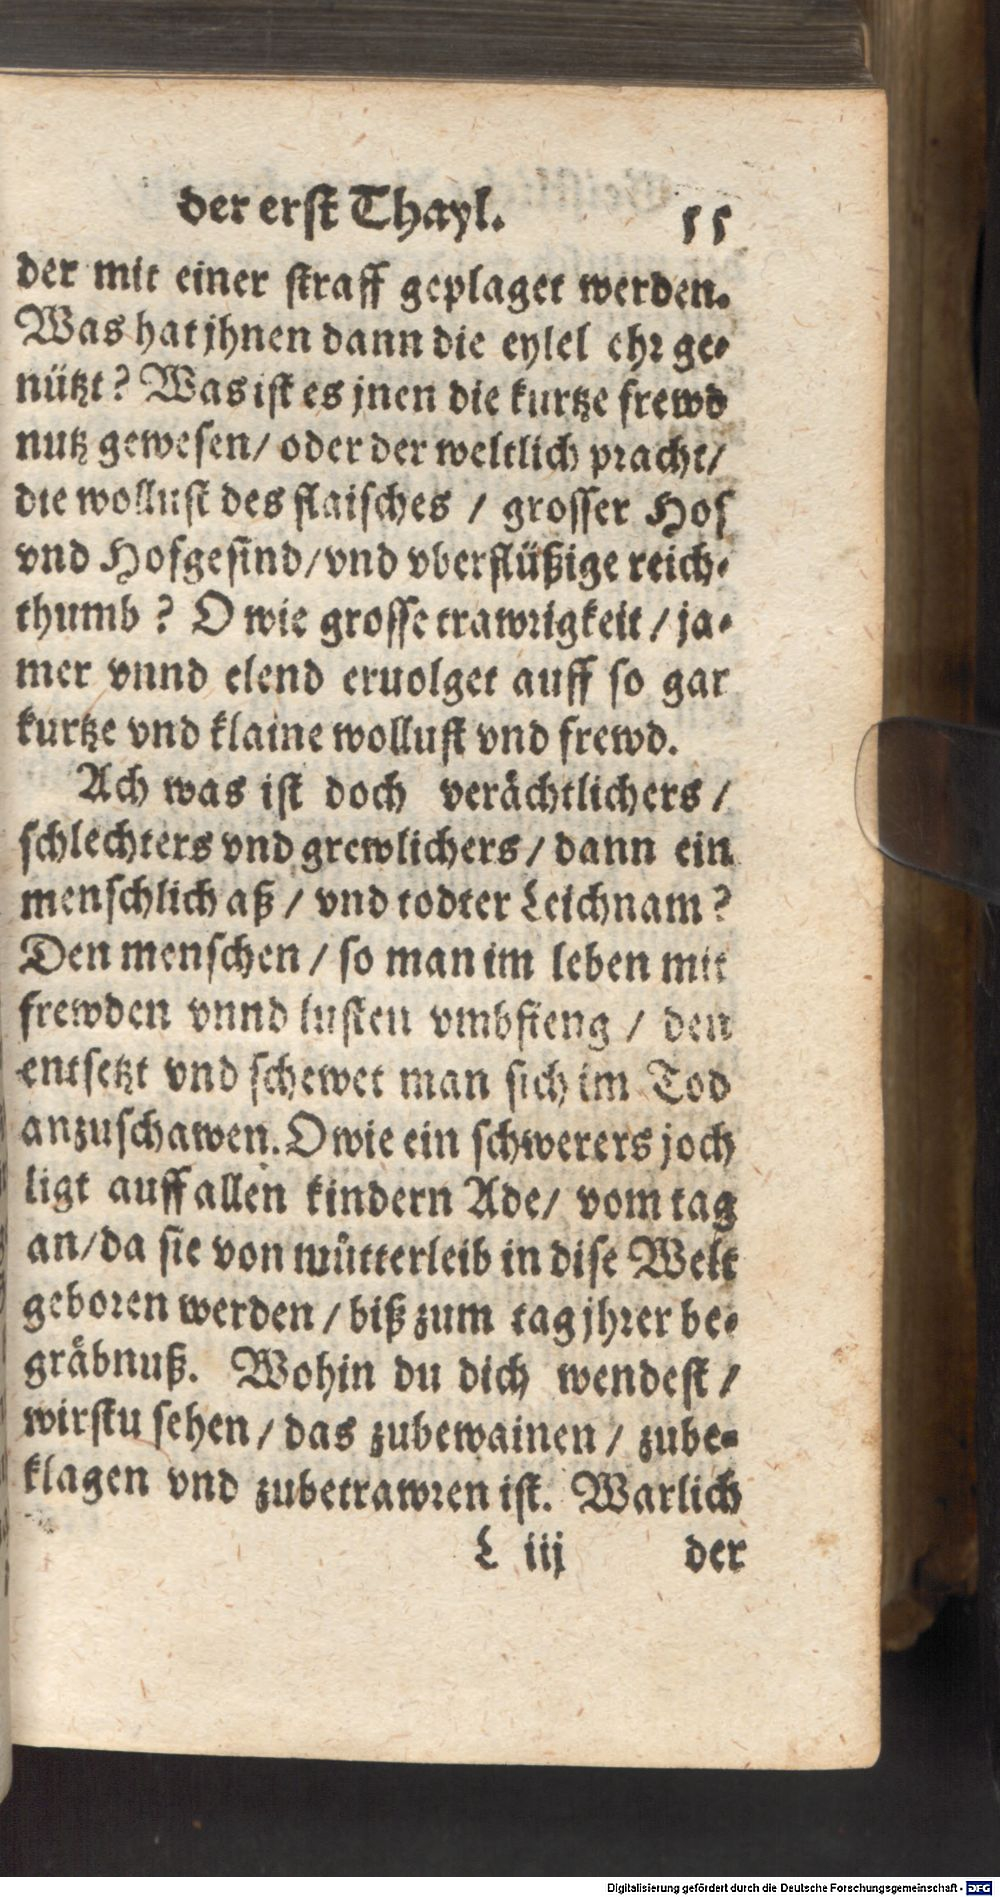 der erst Thayl. 55
der mit einer straff geplaget werden.
Was hat jhnen dann die eytel ehr ge-
nützt? Was ist es jnen die kurtze frewd
nutz gewesen/ oder der weltlich pracht/
die wollust des flaisches / grosser Hof
vnd Hofgesind/vnd vberflüßige reich-
thumb? O wie grosse trawrigkeit / ja-
mer vnnd elend eruolget auff so gar
kurtze vnd klaine wollust vnd frewd.
Ach was ist doch verächtlichers /
schlechters vnd grewlichers / dann ein
menschlich aß / vnd todter Leichnam?
Den menschen / so man im leben mit
frewden vnnd lusten vmbfieng / den
entsetzt vnd schewet man sich im Tod
anzuschawen. O wie ein schwerers joch
ligt auff allen kindern Ade/ vom tag
an/da sie von mütterleib in dise Welt
geboren werden / biß zum tag jhrer be-
gräbnuß. Wohin du dich wendest /
wirstu sehen / das zubewainen / zube-
klagen vnd zubetrawren ist. Warlich
L iij der
Digitalisierung gefördert durch die Deutsche Forschungsgemeinschaft - DFG